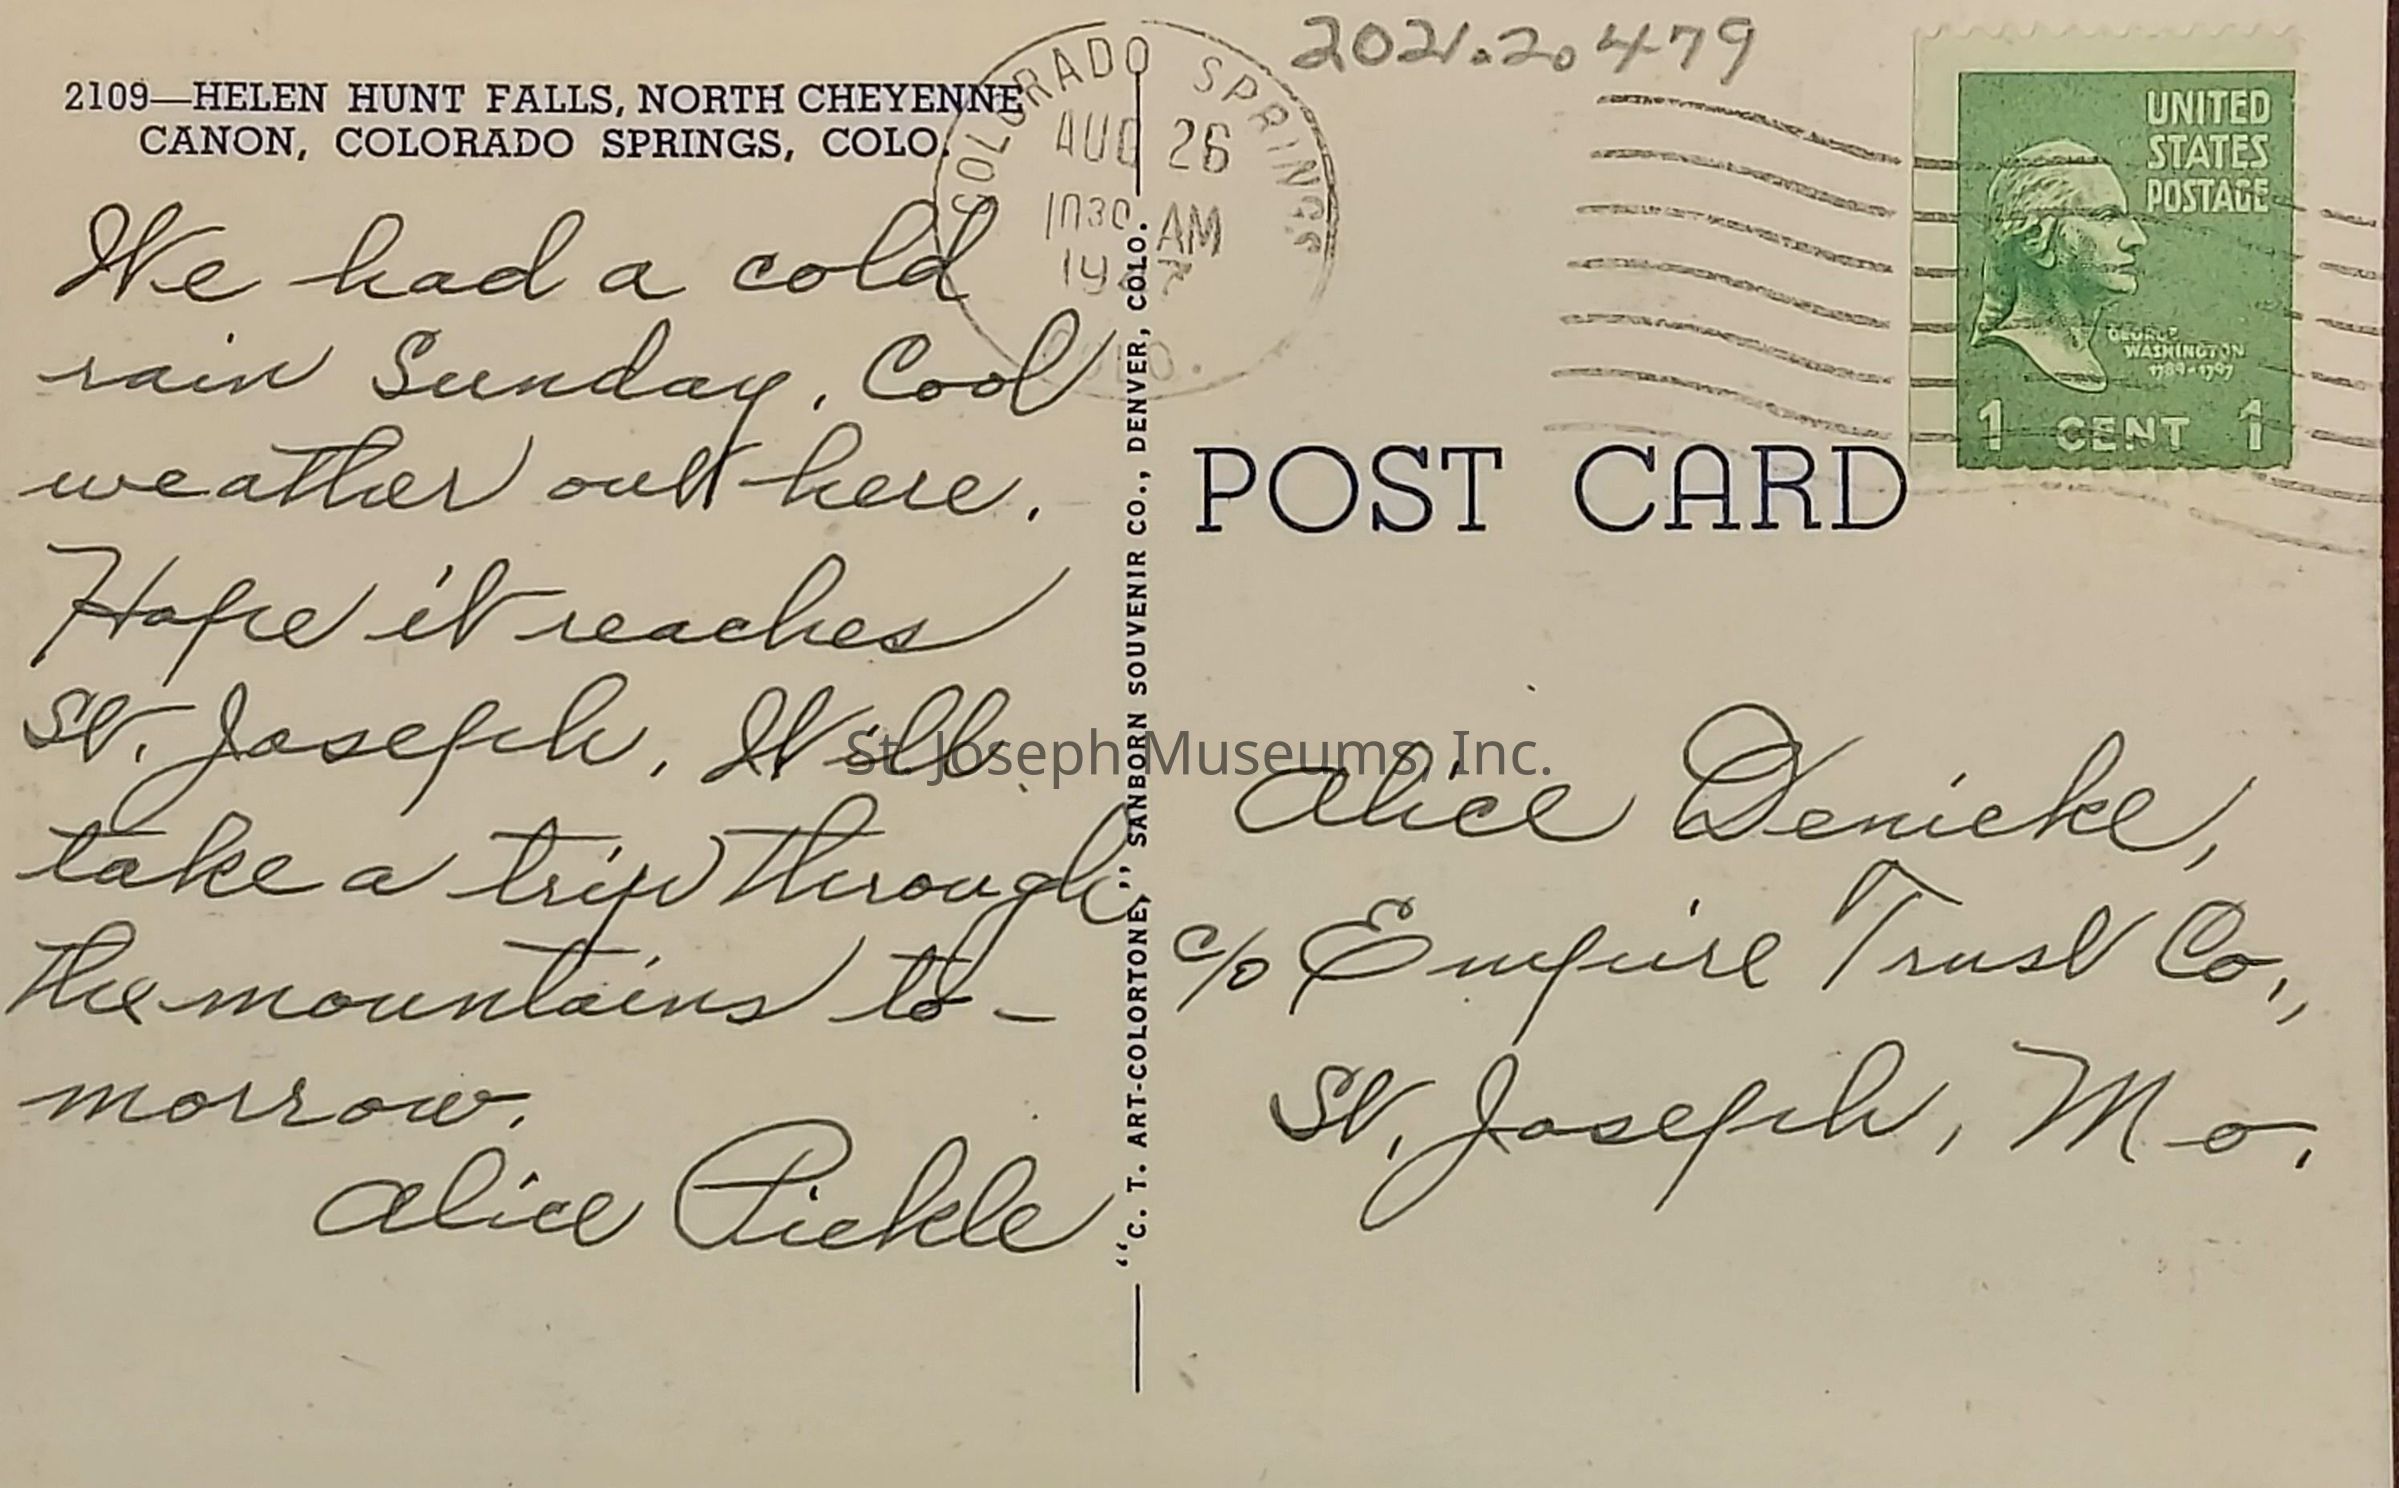 2021.2.479
2109—HELEN HUNT FALLS, NORTH CHEYENNE
CANON, COLORADO SPRINGS, COLO.
COLORADO SPRINGS
AUG 26
1030 AM
COLO.
UNITED
STATES
POSTAGE
GEORGE
WASHINGTON
1789-1797
1 CENT 1
We had a cold
rain Sunday. Cool
weather out here.
Hope it reaches
St. Joseph. Will
take a trip through
the mountains to-
morrow.
Alice Pickle
"C. T. ART-COLORTONE," SANBORN SOUVENIR CO., DENVER, COLO.
POST CARD
Alice Denicke,
c/o Empire Trust Co.,
St. Joseph, Mo.
St. Joseph Museums, Inc.